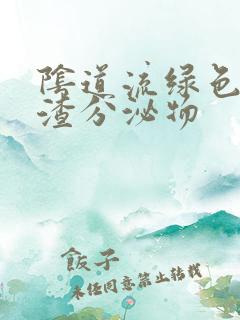 陰道流绿色
渣分泌物
飯子
未经同意禁止转载